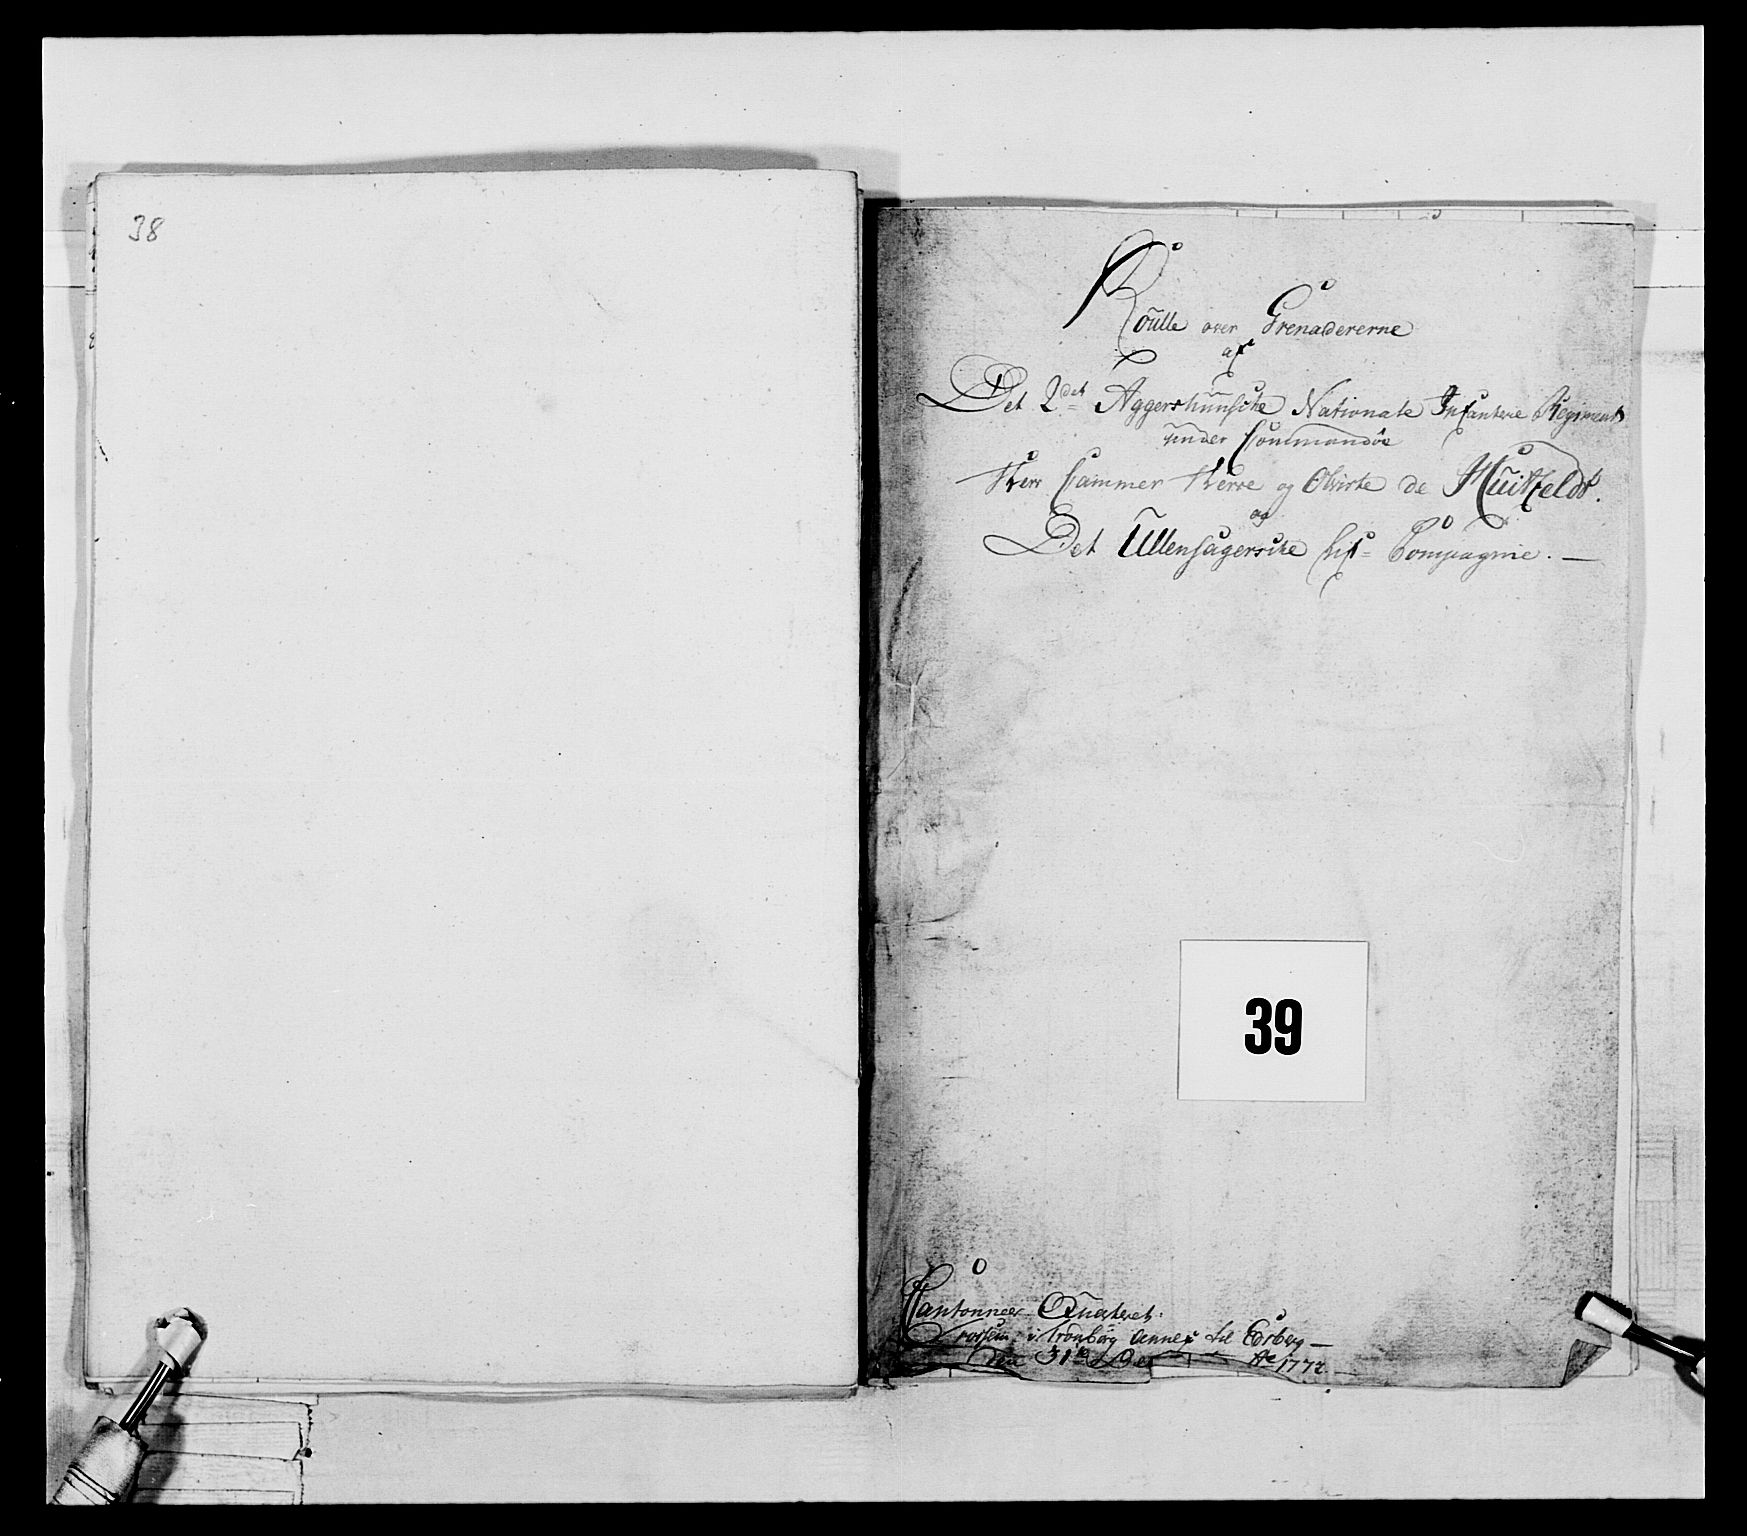 38
Roulle over Grenadererne
af
Det 2det Aggershuusche Nationale Infanterie Regiment
under Commandoe
Herr Cammer Herre og Obriste de Huitfeldt.
og
Det Ullensagersche Lif= Compagnie. —
39
Cantonneer Quarteret
i Trønborg annex til Edsberg —
den 31te Dec Ao 1772